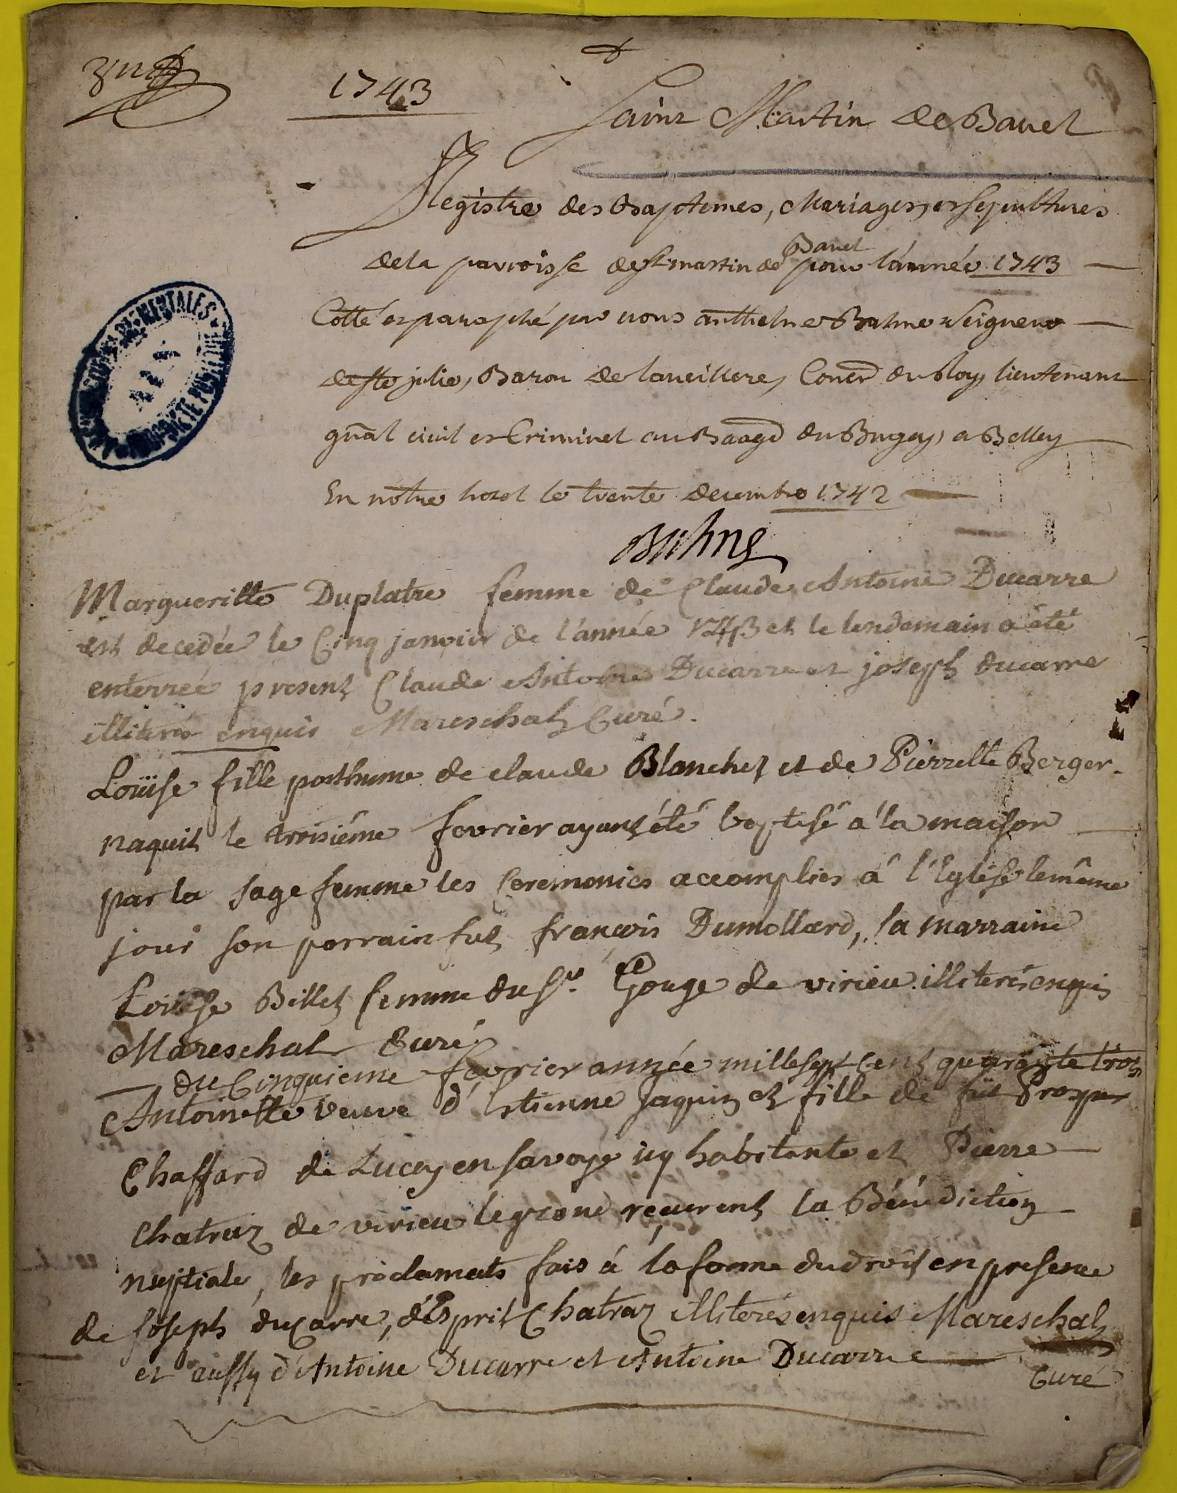 1743
Saint Martin de Bavel
Registre des Baptemes, Mariages, et sepultures
de la parroisse de st martin de Bavel pour l'année 1743
Cotté et paraphé par nous anthelme Balme seigneur
de ste julie, Baron de Conser du Roy, lieutenant
gnal civil et Criminel au Baage du Bugey, a Belley
En notre hotel le trente decembre 1742
Balme
Margueritte Duplatre femme de Claude Antoine Ducarre
est decedée le Cinq janvier de l'année 1743 et le lendemain a été
enterrée present Claude Antoine Ducarre et joseph ducarre
illiterés enquis Mareschal Curé.
Loüise fille posthume de claude Blanchet et de Pierrette Berger
naquit le troisiéme fevrier ayant été baptisé a la maison
par la sage femme les Ceremonies accomplies á l'Eglise le même
jour son parrain fut françois Dumollard, la marraine
Loüise Billet femme du Sr. Gouge de virieu illiterés enquis
Mareschal Curé
du Cinquieme fevrier année mille sept cent quarante trois
Antoinette veuve d'Estienne Jaquin et fille de fut Prosper
Chaffard de Lucey en savoye icy habitante et Pierre
Chatraz de virieu le grand reçurent la Bénédiction
nuptiale, les proclamats fais á la forme du droit en presence
de Joseph ducarre, d'Esprit Chatraz illiterés enquis Mareschal
et aussy d'Antoine Ducarre et Antoine Ducarre Curé